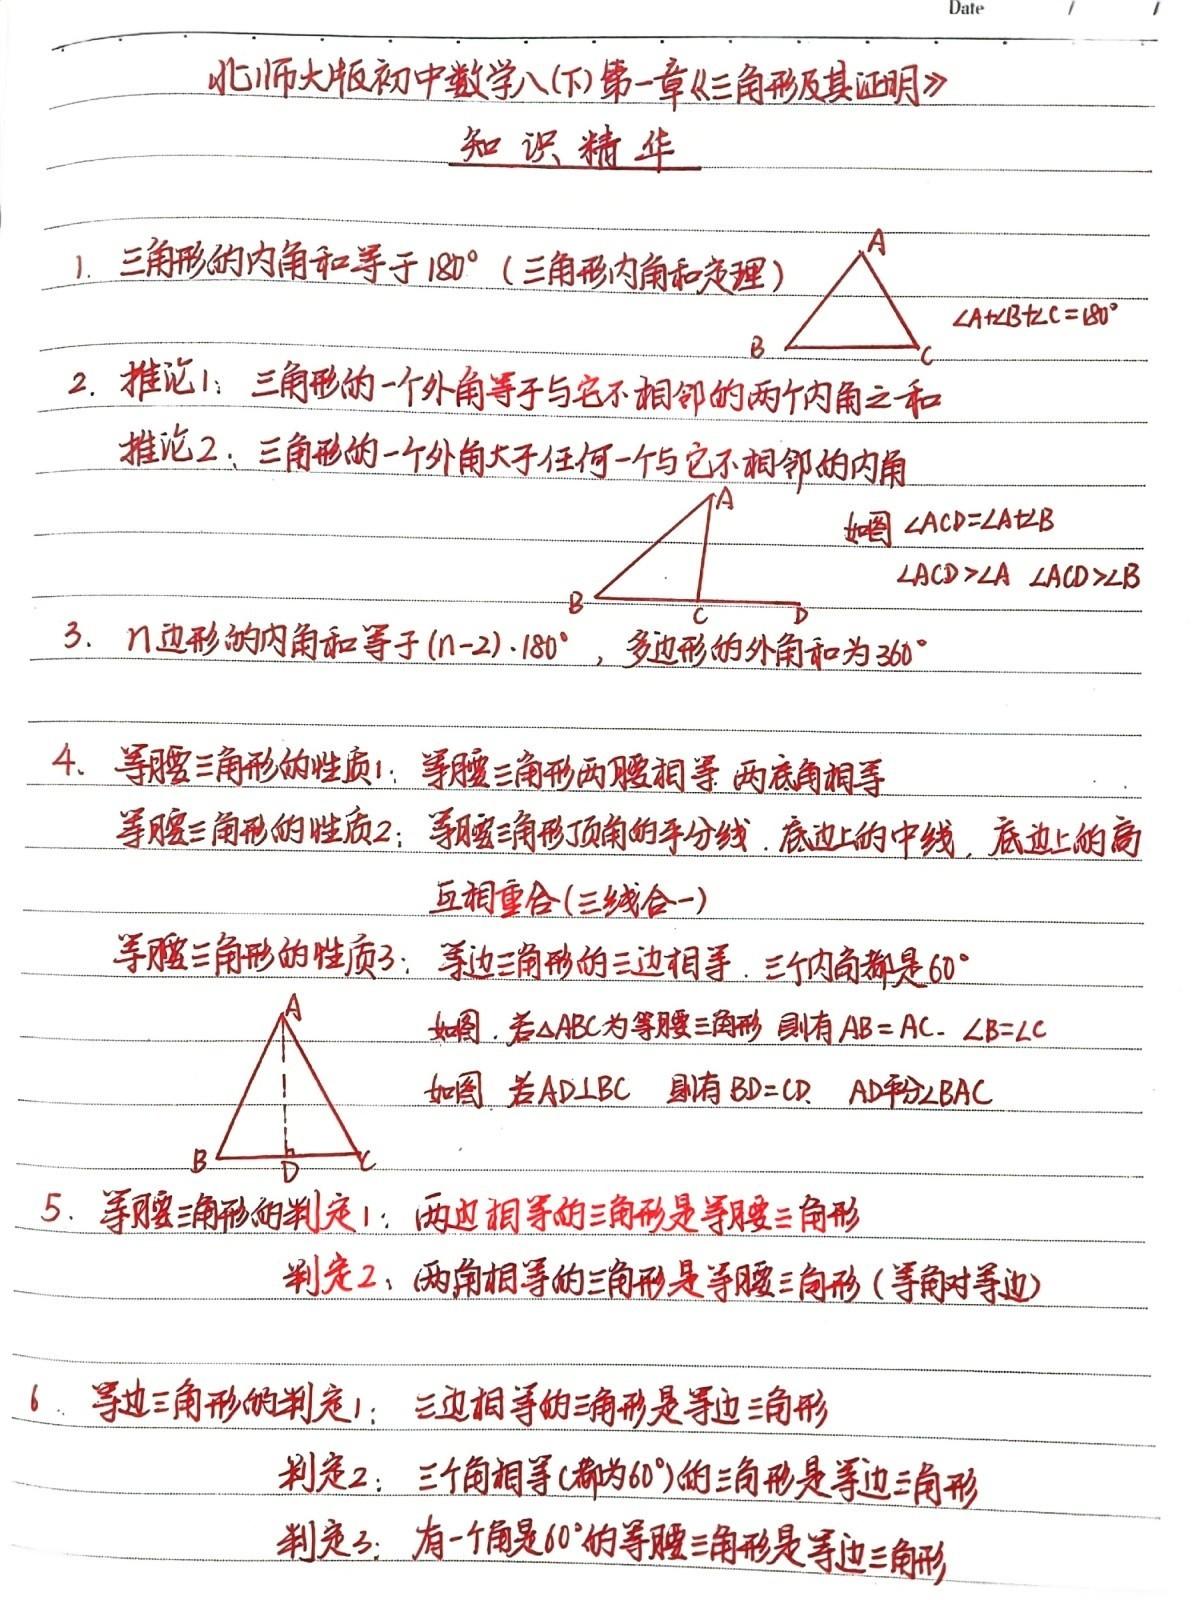 Date / /
北师大版初中数学八(下)第一章《三角形及其证明》
知识精华
1. 三角形的内角和等于180°(三角形内角和定理)
A
B
C
∠A+∠B+∠C=180°
2. 推论1: 三角形的一个外角等于与它不相邻的两个内角之和
推论2: 三角形的一个外角大于任何一个与它不相邻的内角
A
B
C
D
如图 ∠ACD=∠A+∠B
∠ACD>∠A ∠ACD>∠B
3. n边形的内角和等于(n-2)·180°, 多边形的外角和为360°
4. 等腰三角形的性质1: 等腰三角形两腰相等 两底角相等
等腰三角形的性质2: 等腰三角形顶角的平分线. 底边上的中线, 底边上的高
互相重合(三线合一)
等腰三角形的性质3: 等边三角形的三边相等. 三个内角都是60°
A
B
D
C
如图. 若△ABC为等腰三角形 则有AB=AC. ∠B=∠C
如图 若AD⊥BC 则有BD=CD. AD平分∠BAC
5. 等腰三角形的判定1: 两边相等的三角形是等腰三角形
判定2: 两角相等的三角形是等腰三角形(等角对等边)
6. 等边三角形的判定1: 三边相等的三角形是等边三角形
判定2: 三个角相等(都为60°)的三角形是等边三角形
判定3: 有一个角是60°的等腰三角形是等边三角形